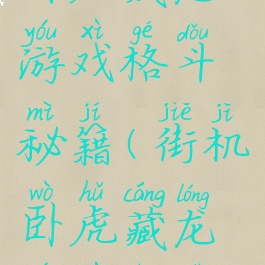 yóu xì gé dǒu
游戏格斗
mì jí jiē jī
秘籍(街机
wò hǔ cáng lóng
卧虎藏龙